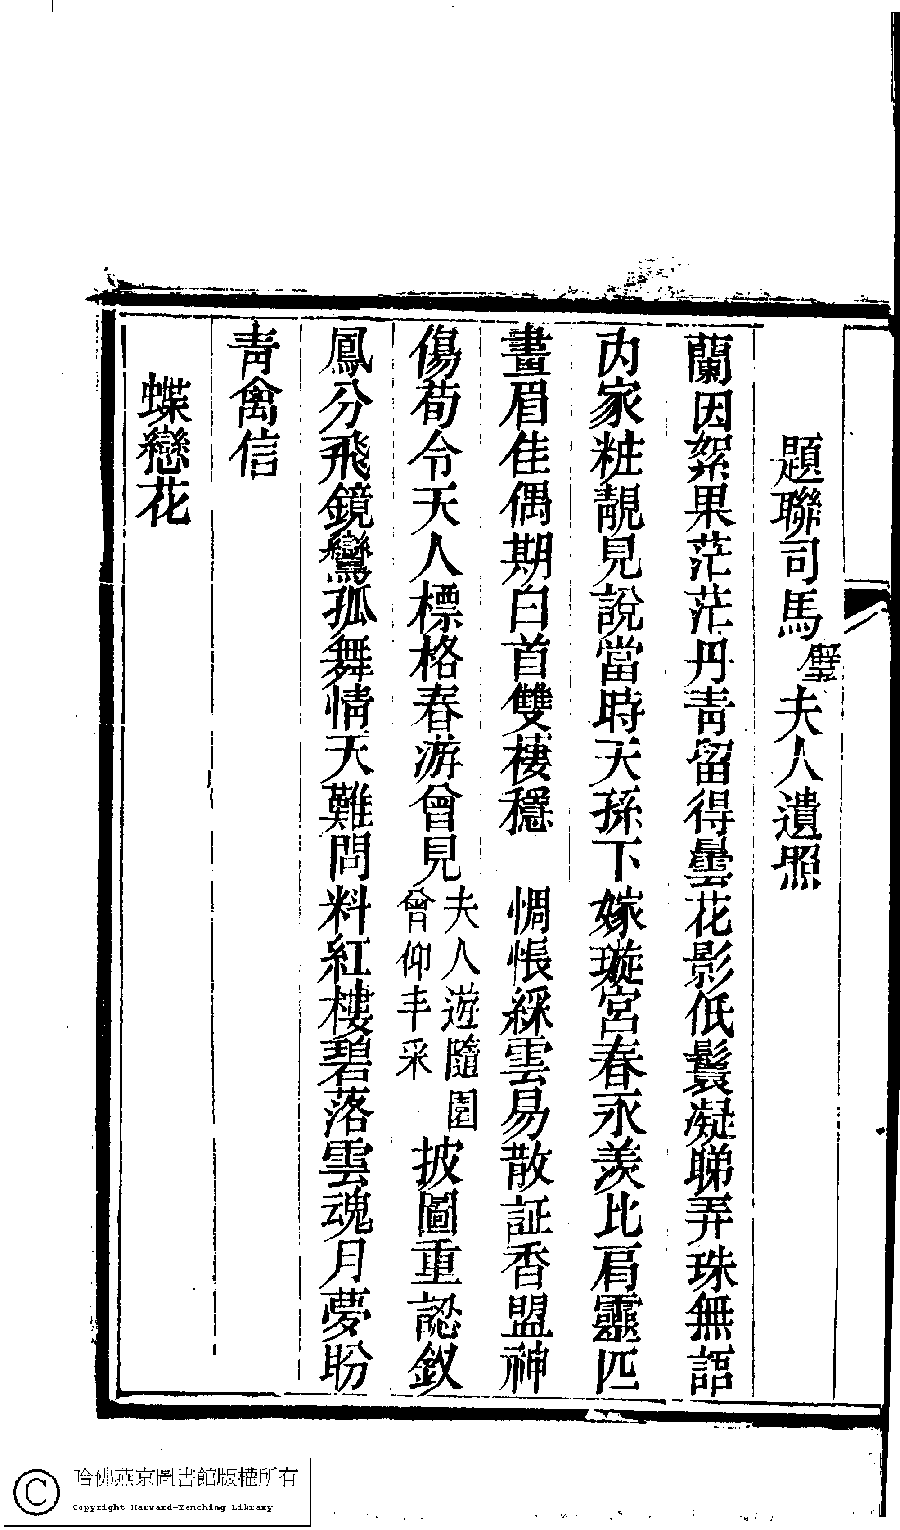 題聯司馬璧夫人遺照
蘭因絮果茫茫丹青留得曇花影低鬟凝睇弄珠無語
內家粧靚見說當時天孫下嫁璇宮春永羨比肩靈匹
畫眉佳偶期白首雙棲穩　惆悵綵雲易散証香盟神
傷荀令天人標格春游曾見夫人遊隨園曾仰丰采披圖重認釵
鳳分飛鏡鸞孤舞情天難問料紅樓碧落雲魂月夢盼
青禽信
蝶戀花
哈佛燕京圖書館版權所有
Copyright Harvard-Yenching Library